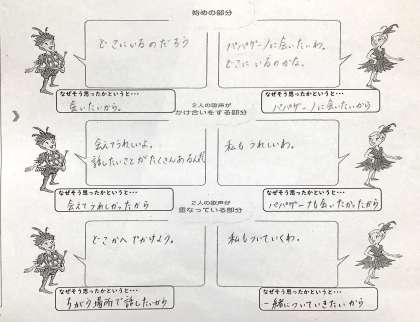 始めの部分
どこにいるのだろう
パパゲーノに会いたいわ。
どこにいるのかな。
なぜそう思ったかというと…
会いたいから。
なぜそう思ったかというと…
パパゲーノに会いたいから
2人の歌声が
かけ合いをする部分
会えてうれしいよ。
話したいことがたくさんあるんだ
私もうれしいわ。
なぜそう思ったかというと…
会えてうれしかったから
なぜそう思ったかというと…
パパゲーナも会いたかったから
2人の歌声が
重なっている部分
どこかへでかけよう。
私もついていくわ。
なぜそう思ったかというと…
ちがう場所で話したいから
なぜそう思ったかというと…
一緒についていきたいから